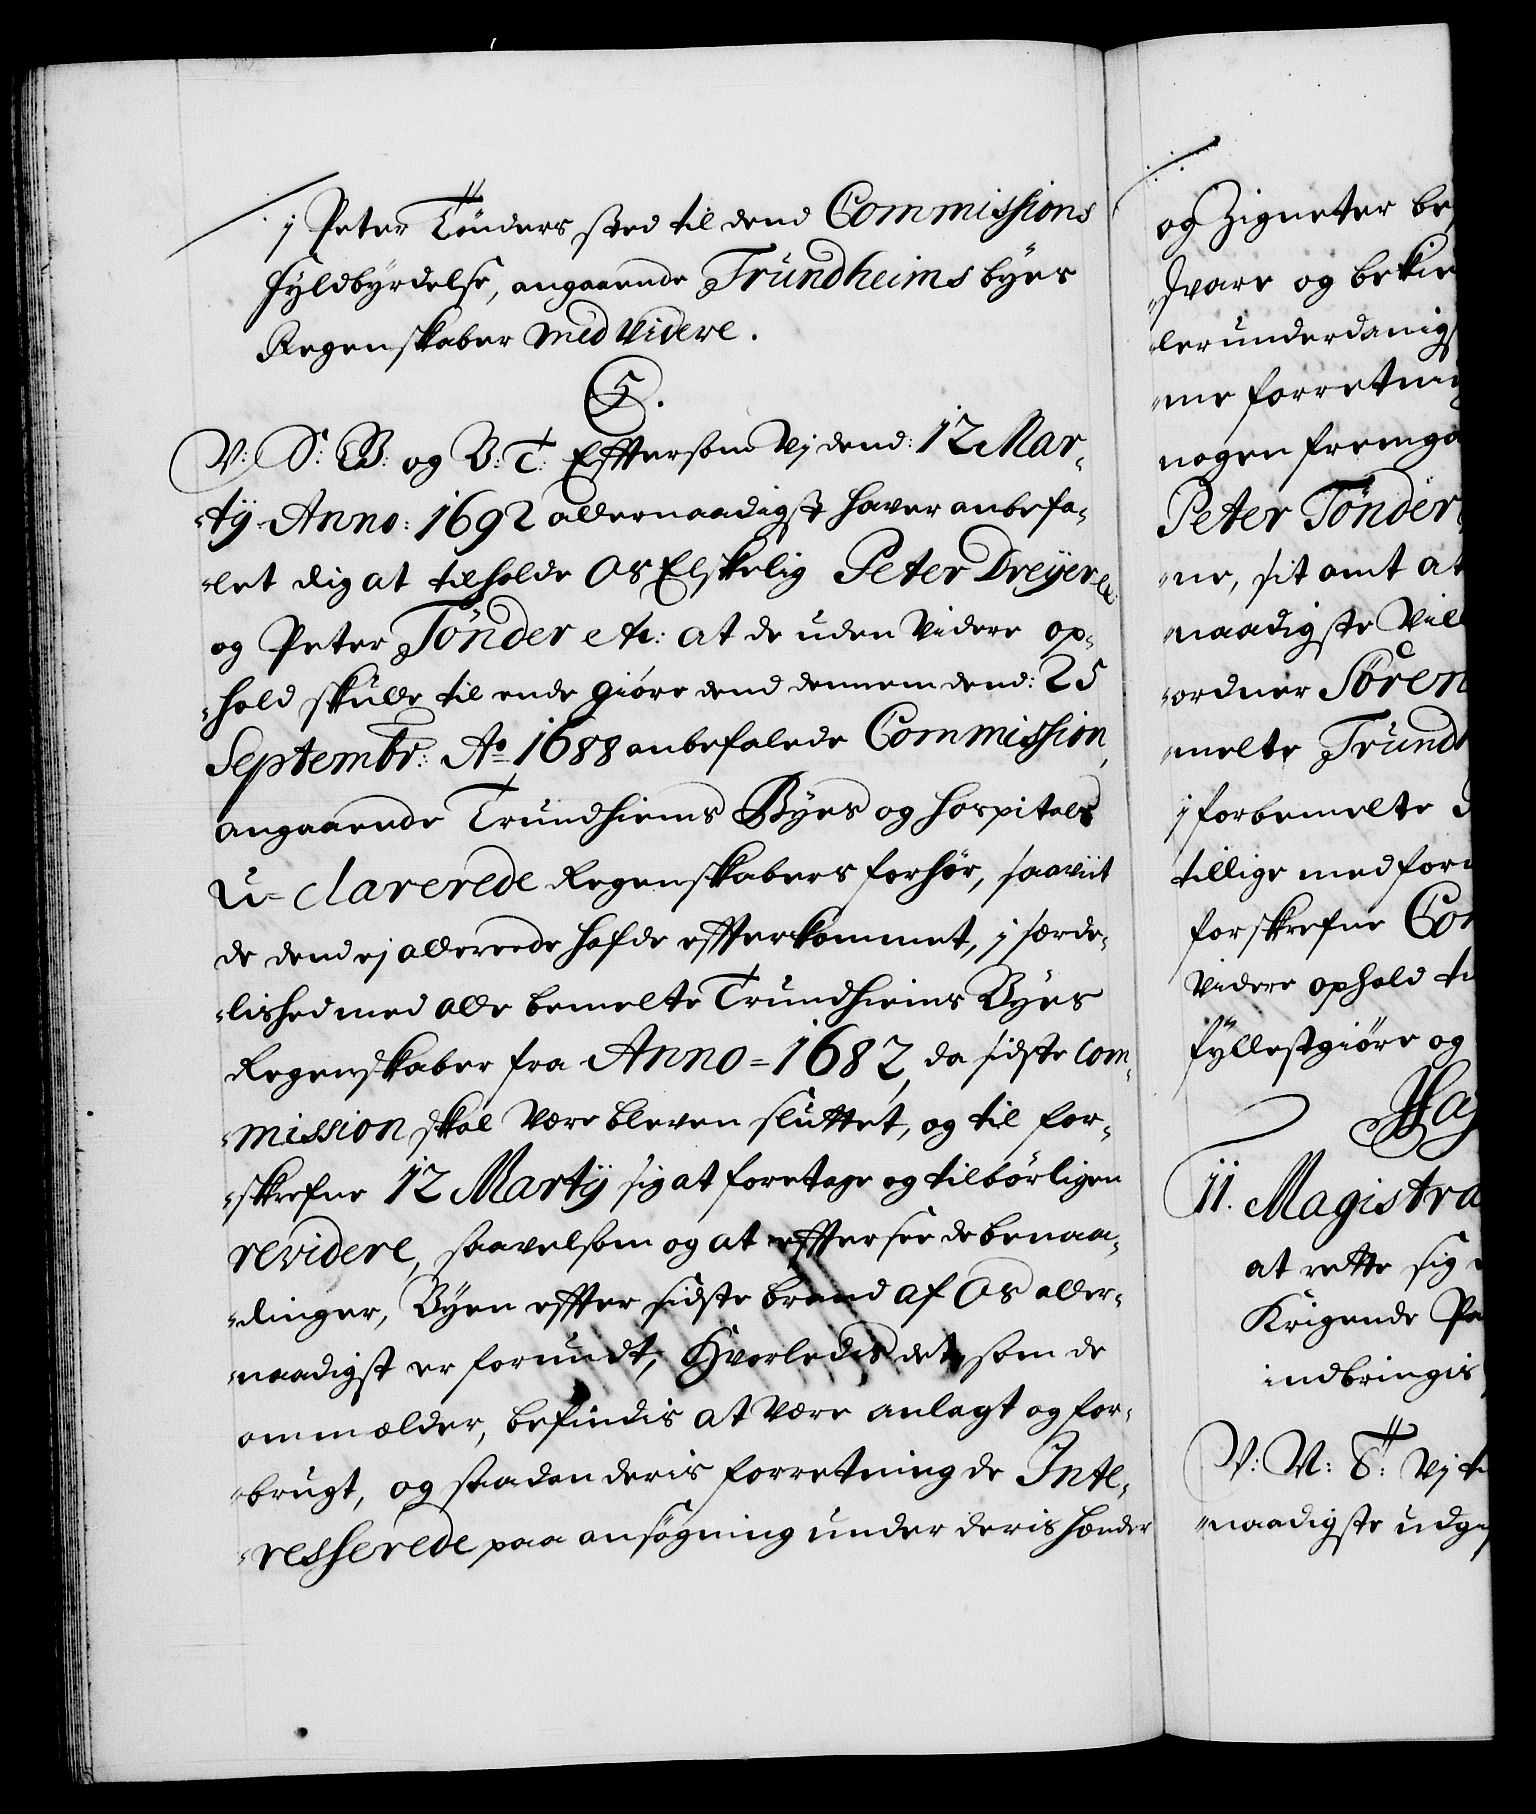 j Peter Tönders sted til dend Commissions
fyldbyrdelse, angaaende Trundheims byes
Regenskaber med videre.
5.
V: S: B: og V: T: Eftersom Vj dend: 12 Mar-
-tij Anno: 1692 allernaadigst haver anbefa-
-let dig at tilholde Os Elskelig Peter Dreyer etc:
og Peter Tönder etc: at de uden Videre op-
-hold skulle til ende giöre dend dennem dend: 25
Septembr: Ao 1688 anbefalede Commission,
angaaende Trundhiems Byes og Hospitals
U-clarerede Regenskabers forhör, saaviit
de dend ej allereede hafde efterkommet, j særde-
-lished med alle bemelte Trundhiems Byes
Regenskaber fra Anno=1682, da sidste Com-
-mission skal være bleven sluttet, og til for-
-skrefne 12 Martij sig at foretage og tilbörligen
revidere, saavelsom og at eftersee de benaa-
-dinger, Byen efter sidste brand af Os aller-
-naadigst er forundt, Hvorledis det, som de
ommælder, befindis at være anlagt og for-
-brugt, og saadan deris forretning de Inte-
-resserede paa ansögning under deris hænder
og Zigneter be
-svare og bekie
-lerunderdanigs
-me forretni
nogen fremga
Peter Tönder
-ne, sit amt at
-naadigste Vill
-ordner Sören
melte Trund
j forbemelte
tillige med for
forskrefne Com
videre ophold ti
fyllestgiöre og
Haf
11. Magistra
at rette sig
Krigende Pa
indbringis
V: M: S: Vj
-naadigste udg